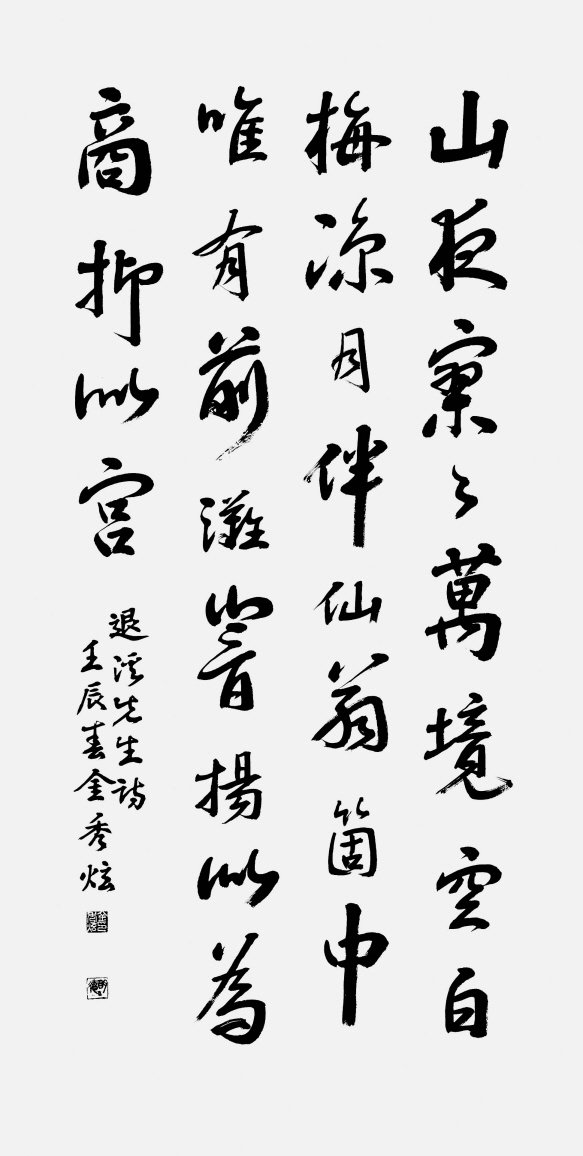 山夜寥々萬境空白
梅涼月伴仙翁箇中
唯有前灘響揚似為
商抑似宮
退溪先生詩
壬辰春金秀炫